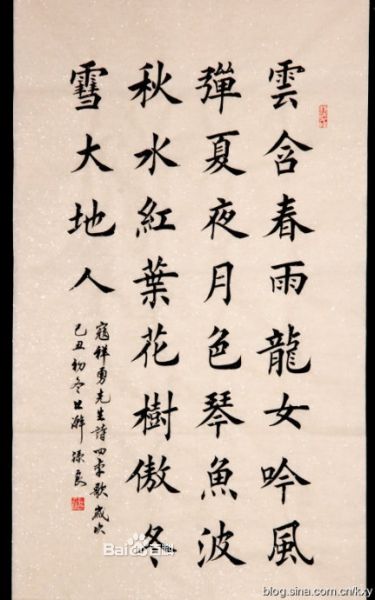 雲含春雨龍女吟風
彈夏夜月色琴魚波
秋水紅葉花樹傲冬
雪大地人
寇祥勇先生詩四季歌歲次
己丑初冬
Bai百科
blog.sina.com.cn/kxy